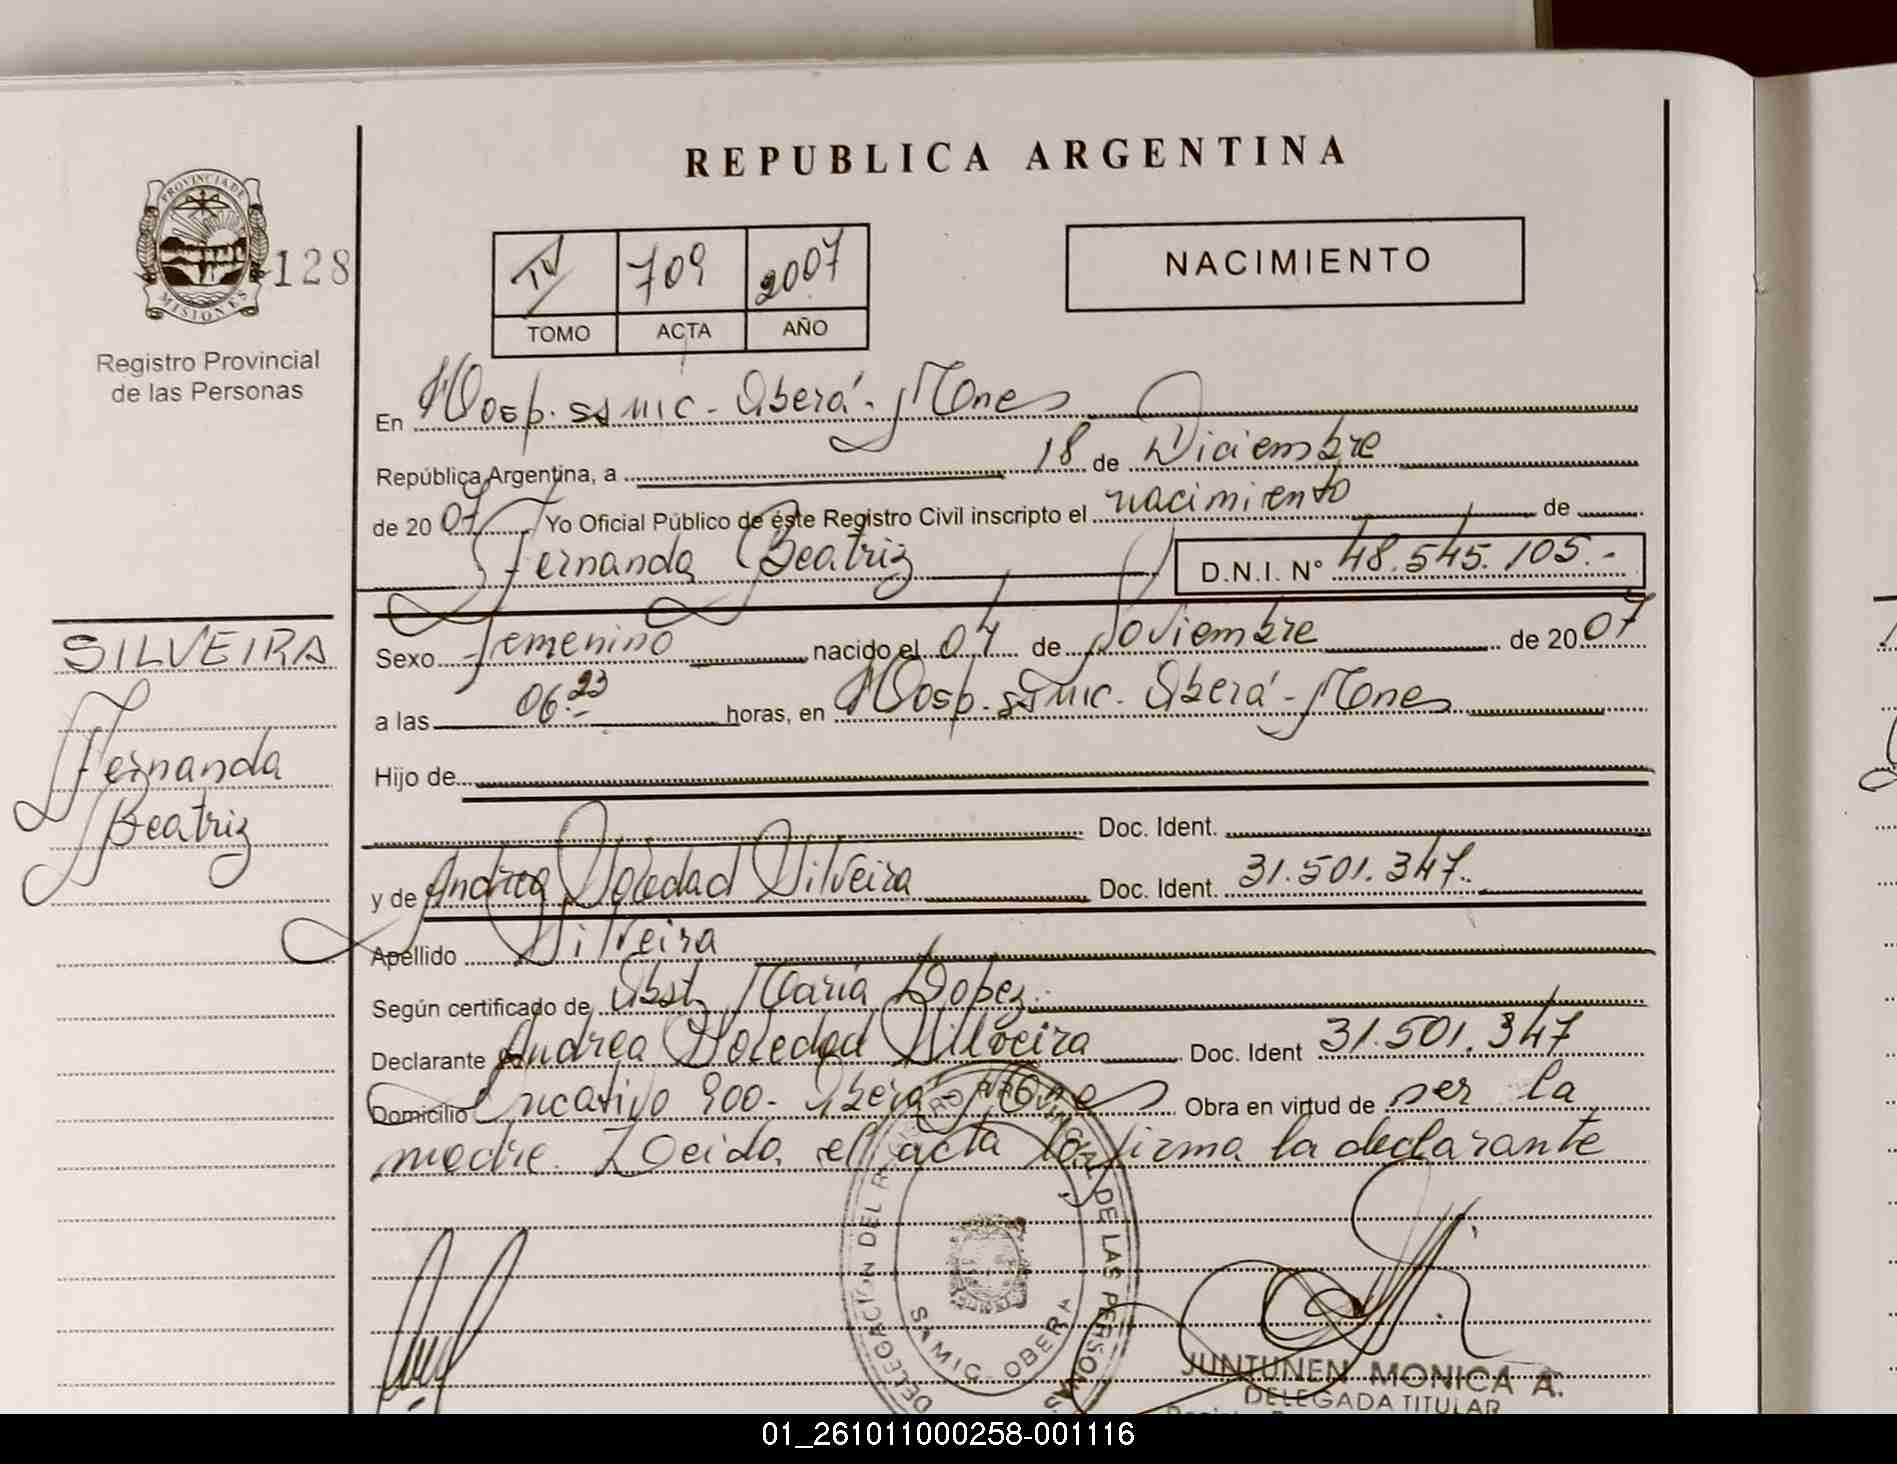 REPUBLICA ARGENTINA
PROVINCIA DE
MISIONES
128
Registro Provincial
de las Personas
IV 709 2007
TOMO ACTA AÑO
NACIMIENTO
En Hosp. ssmic - Oberá - Mnes
República Argentina, a 18 de Diciembre
de 20 07 Yo Oficial Público de éste Registro Civil inscripto el nacimiento de
Fernanda Beatriz D.N.I. N° 48.545.105.-
SILVEIRA
Fernanda
Beatriz
Sexo femenino nacido el 04 de Noviembre de 20 07
a las 06.23 horas, en Hosp. ssmic. Oberá - Mnes
Hijo de
Doc. Ident.
y de Andrea Soledad Silveira Doc. Ident. 31.501.347.
Apellido Silveira
Según certificado de Obst. María Lopez.
Declarante Andrea Soledad Silveira Doc. Ident 31.501.347
Domicilio 900 - Oberá - Mnes Obra en virtud de ser la
madre. Leida el acta la firma la declarante
DELEGACION DEL REGISTRO PROVINCIAL DE LAS PERSONAS
SAMIC - OBERA
JUNTUNEN MONICA A.
DELEGADA TITULAR
01_261011000258-001116